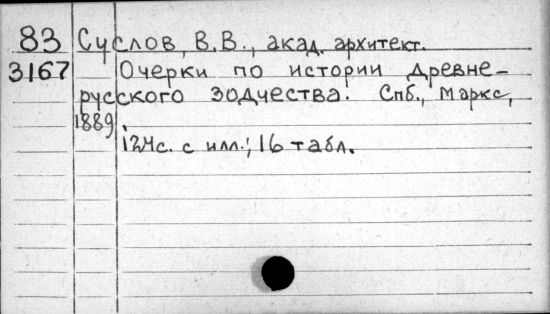 83 Суслов, В.В., акад. архитект.
3167 Очерки по истории древне-
русского зодчества. Спб., Маркс,
1889.
124с. с илл.; 16 табл.